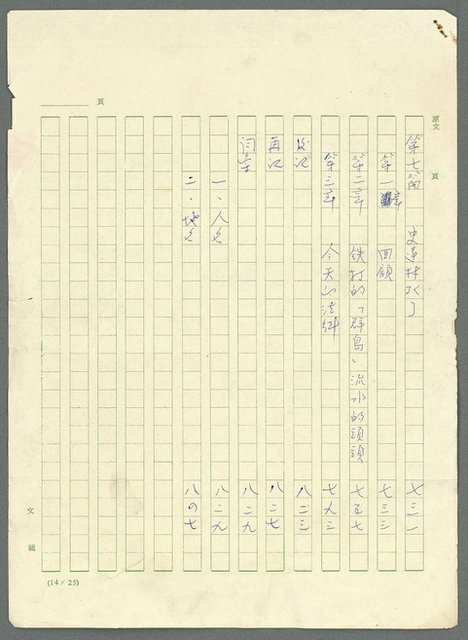 原文　頁
頁
第七篇　史達林死了　七三一
第一章　回顧　七三三
第二章　鉄打的「群島、流水的頭頭　七五七
第三章　今天的法律　七九三
後记　八二三
再记　八二七
八二九
一、人名　八二九
二、地名　八四七
(14×25)